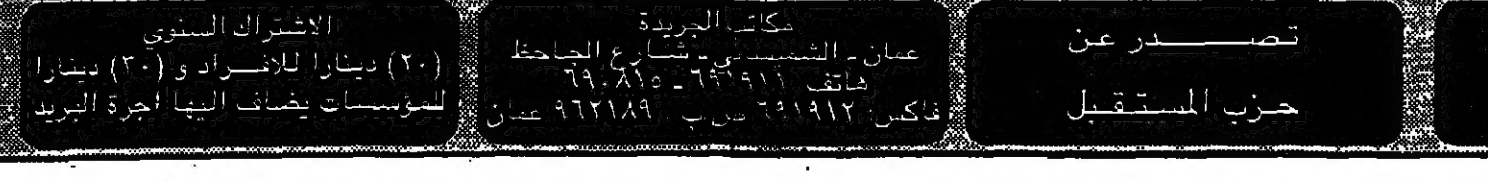 تصدر عن
حزب المستقبل
مكاتب الجريدة
عمان - الشميساني - شارع الجاحظ
هاتف ٦٩١٩١١ - ٦٩٠٨١٥
فاكس: ٦٩١٩١٢ ص.ب ٩٦٢١٨٩ عمان
الاشتراك السنوي
(٢٠) دينارا للافراد و (٣٠) دينارا
للمؤسسات يضاف اليها اجرة البريد